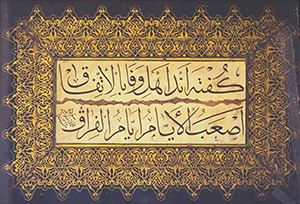 كفته اند اهل وفا بالاتفاق
أصعب الأيام أيام الفراق